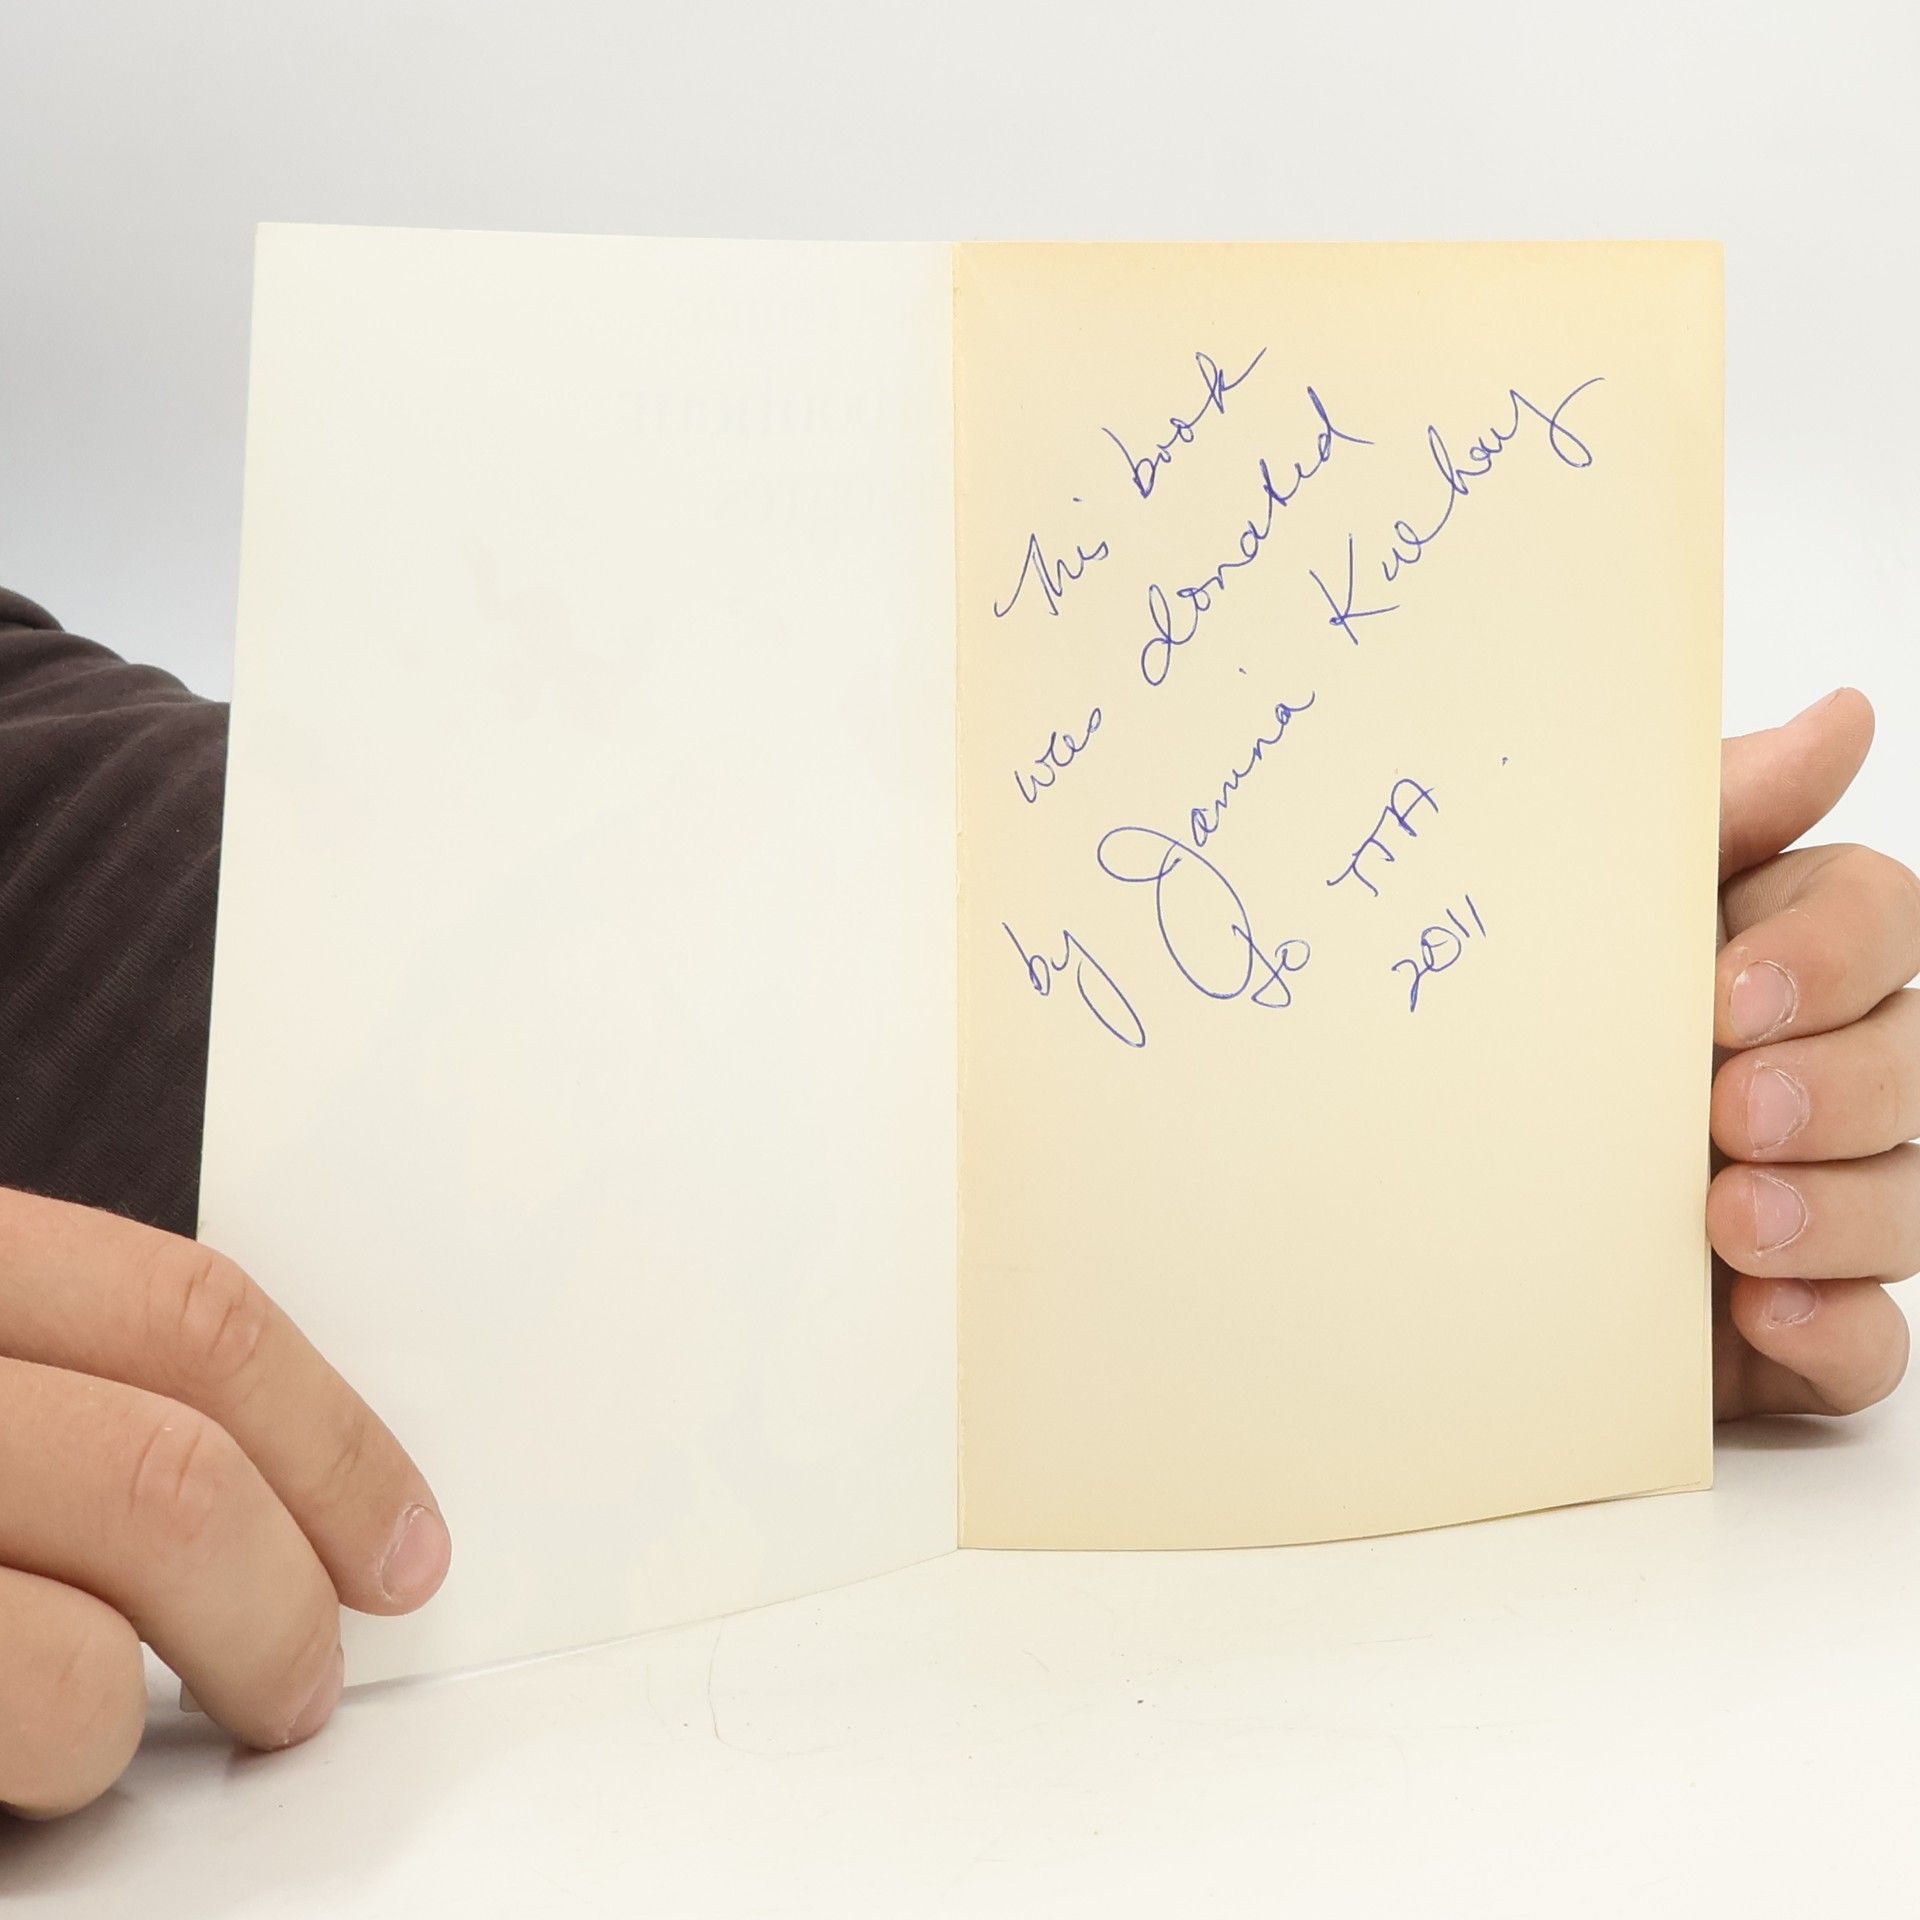 This book
was donated
by Janina Kulhay
To TTA
2011